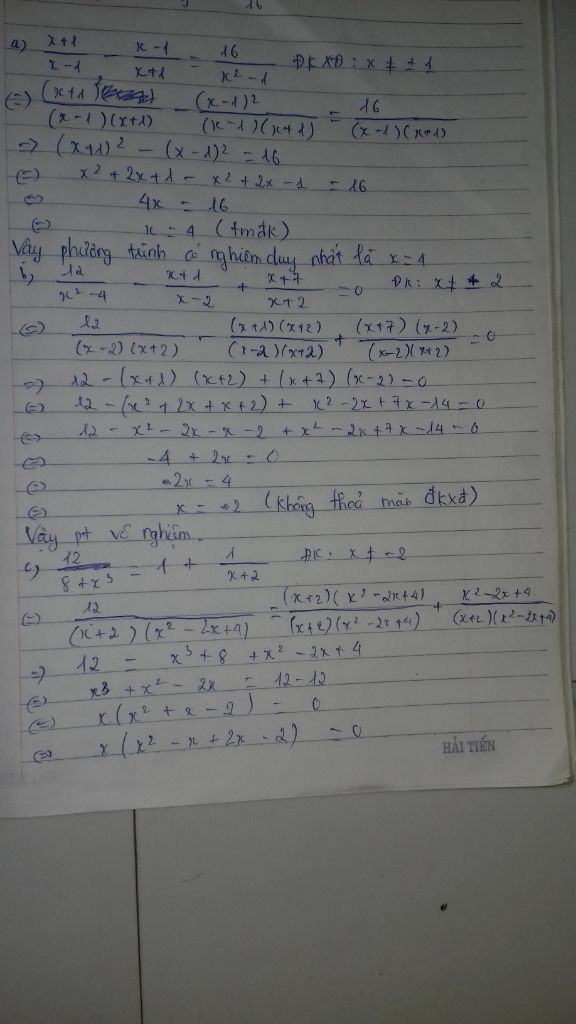 16
a) x+1/x-1 - x-1/x+1 = 16/x²-1 ĐKXĐ: x ≠ ±1
(=) (x+1)/(x-1)(x+1) - (x-1)²/(x-1)(x+1) = 16/(x-1)(x+1)
=> (x+1)² - (x-1)² = 16
(=) x² + 2x+1 - x² + 2x - 1 = 16
(=) 4x = 16
(=) x = 4 (tmđk)
Vậy phương trình có nghiệm duy nhất là x=4
b) 12/x²-4 - x+1/x-2 + x+7/x+2 = 0 ĐK: x ≠ ± 2
(=) 12/(x-2)(x+2) - (x+1)(x+2)/(x-2)(x+2) + (x+7)(x-2)/(x-2)(x+2) = 0
=> 12 - (x+1) (x+2) + (x+7) (x-2) = 0
(=) 12 - (x² + 2x + x + 2) + x² - 2x + 7x - 14 = 0
(=) 12 - x² - 2x - x - 2 + x² - 2x + 7x - 14 = 0
(=) -4 + 2x = 0
(=) 2x = 4
(=) x = 2 (không thoả mãn đkxđ)
Vậy pt vô nghiệm.
c) 12/8+x³ = 1 + 1/x+2 ĐK: x ≠ -2
(=) 12/(x+2)(x²-2x+4) = (x+2)(x²-2x+4)/(x+2)(x²-2x+4) + x²-2x+4/(x+2)(x²-2x+4)
=> 12 = x³ + 8 + x² - 2x + 4
(=) x³ + x² - 2x = 12 - 12
(=) x(x² + x - 2) = 0
(=) x(x² - x + 2x - 2) = 0
HẢI TIẾN